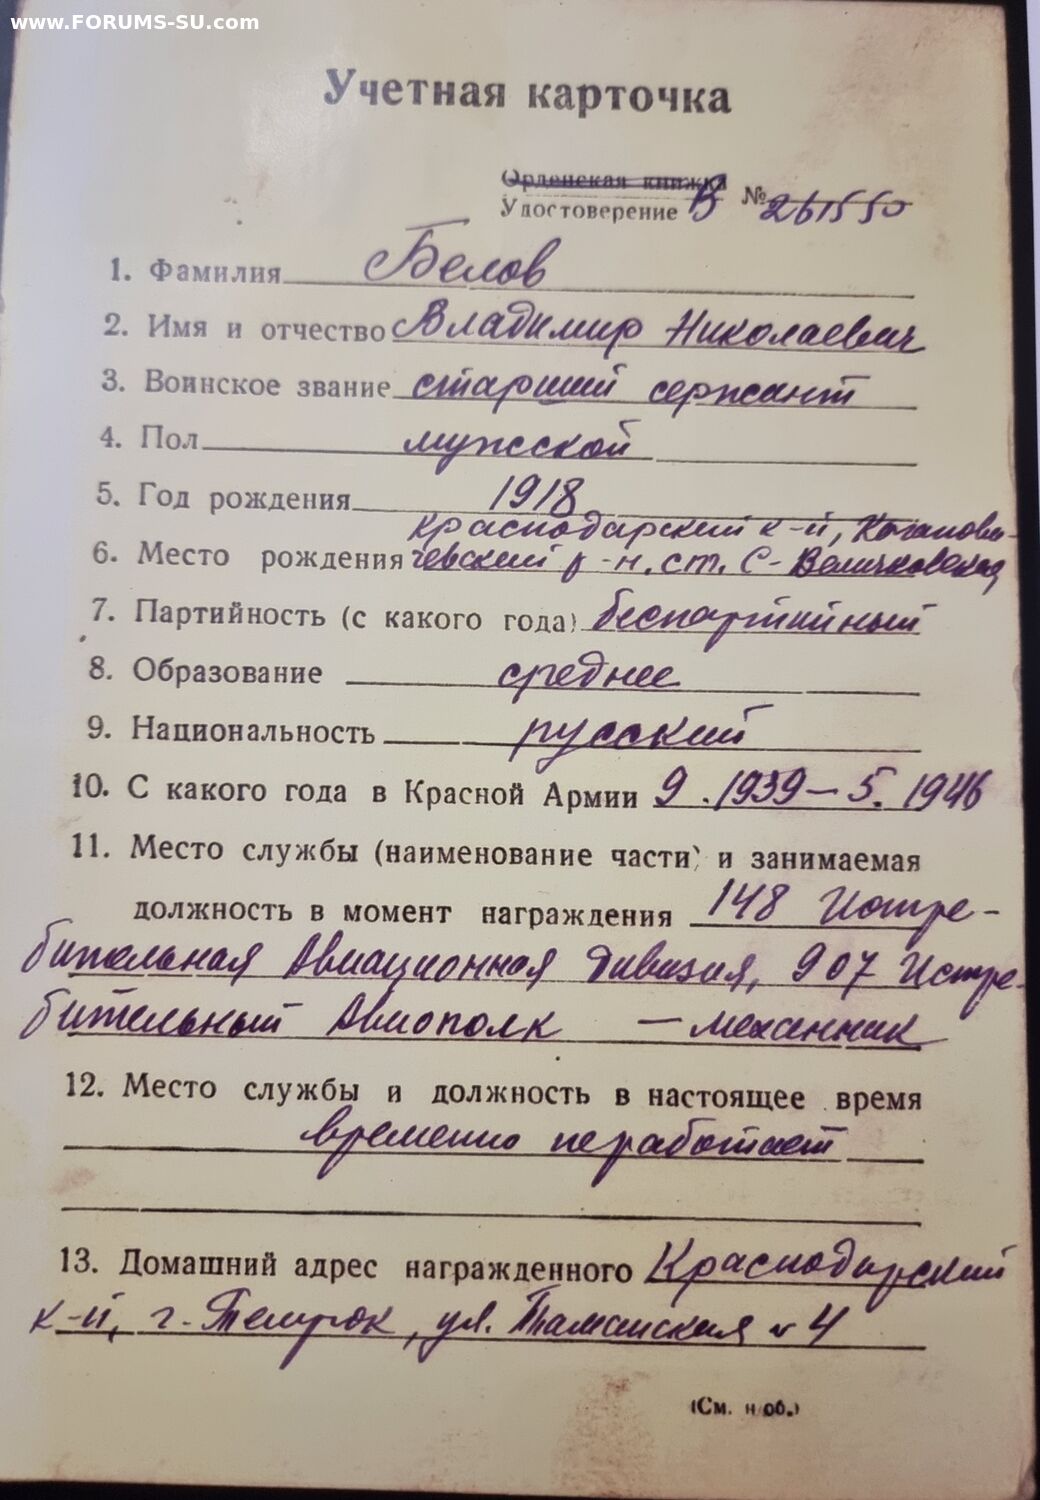 www.FORUMS-SU.com
Учетная карточка
Орденская книжка
Удостоверение В № 261550
1. Фамилия Белов
2. Имя и отчество Владимир Николаевич
3. Воинское звание старший сержант
4. Пол мужской
5. Год рождения 1918
Краснодарский к-й, Каганови-
6. Место рождения чевский р-н. ст. С-Величковская
7. Партийность (с какого года) беспартийный
8. Образование среднее
9. Национальность русский
10. С какого года в Красной Армии 9.1939 – 5.1946
11. Место службы (наименование части) и занимаемая
должность в момент награждения 148 Истре-
бительная Авиационная Дивизия, 907 Истре-
бительный Авиополк – механник
12. Место службы и должность в настоящее время
временно не работает
13. Домашний адрес награжденного Краснодарский
к-й, г. Темрюк, ул. Таманская № 4
(См. н об.)